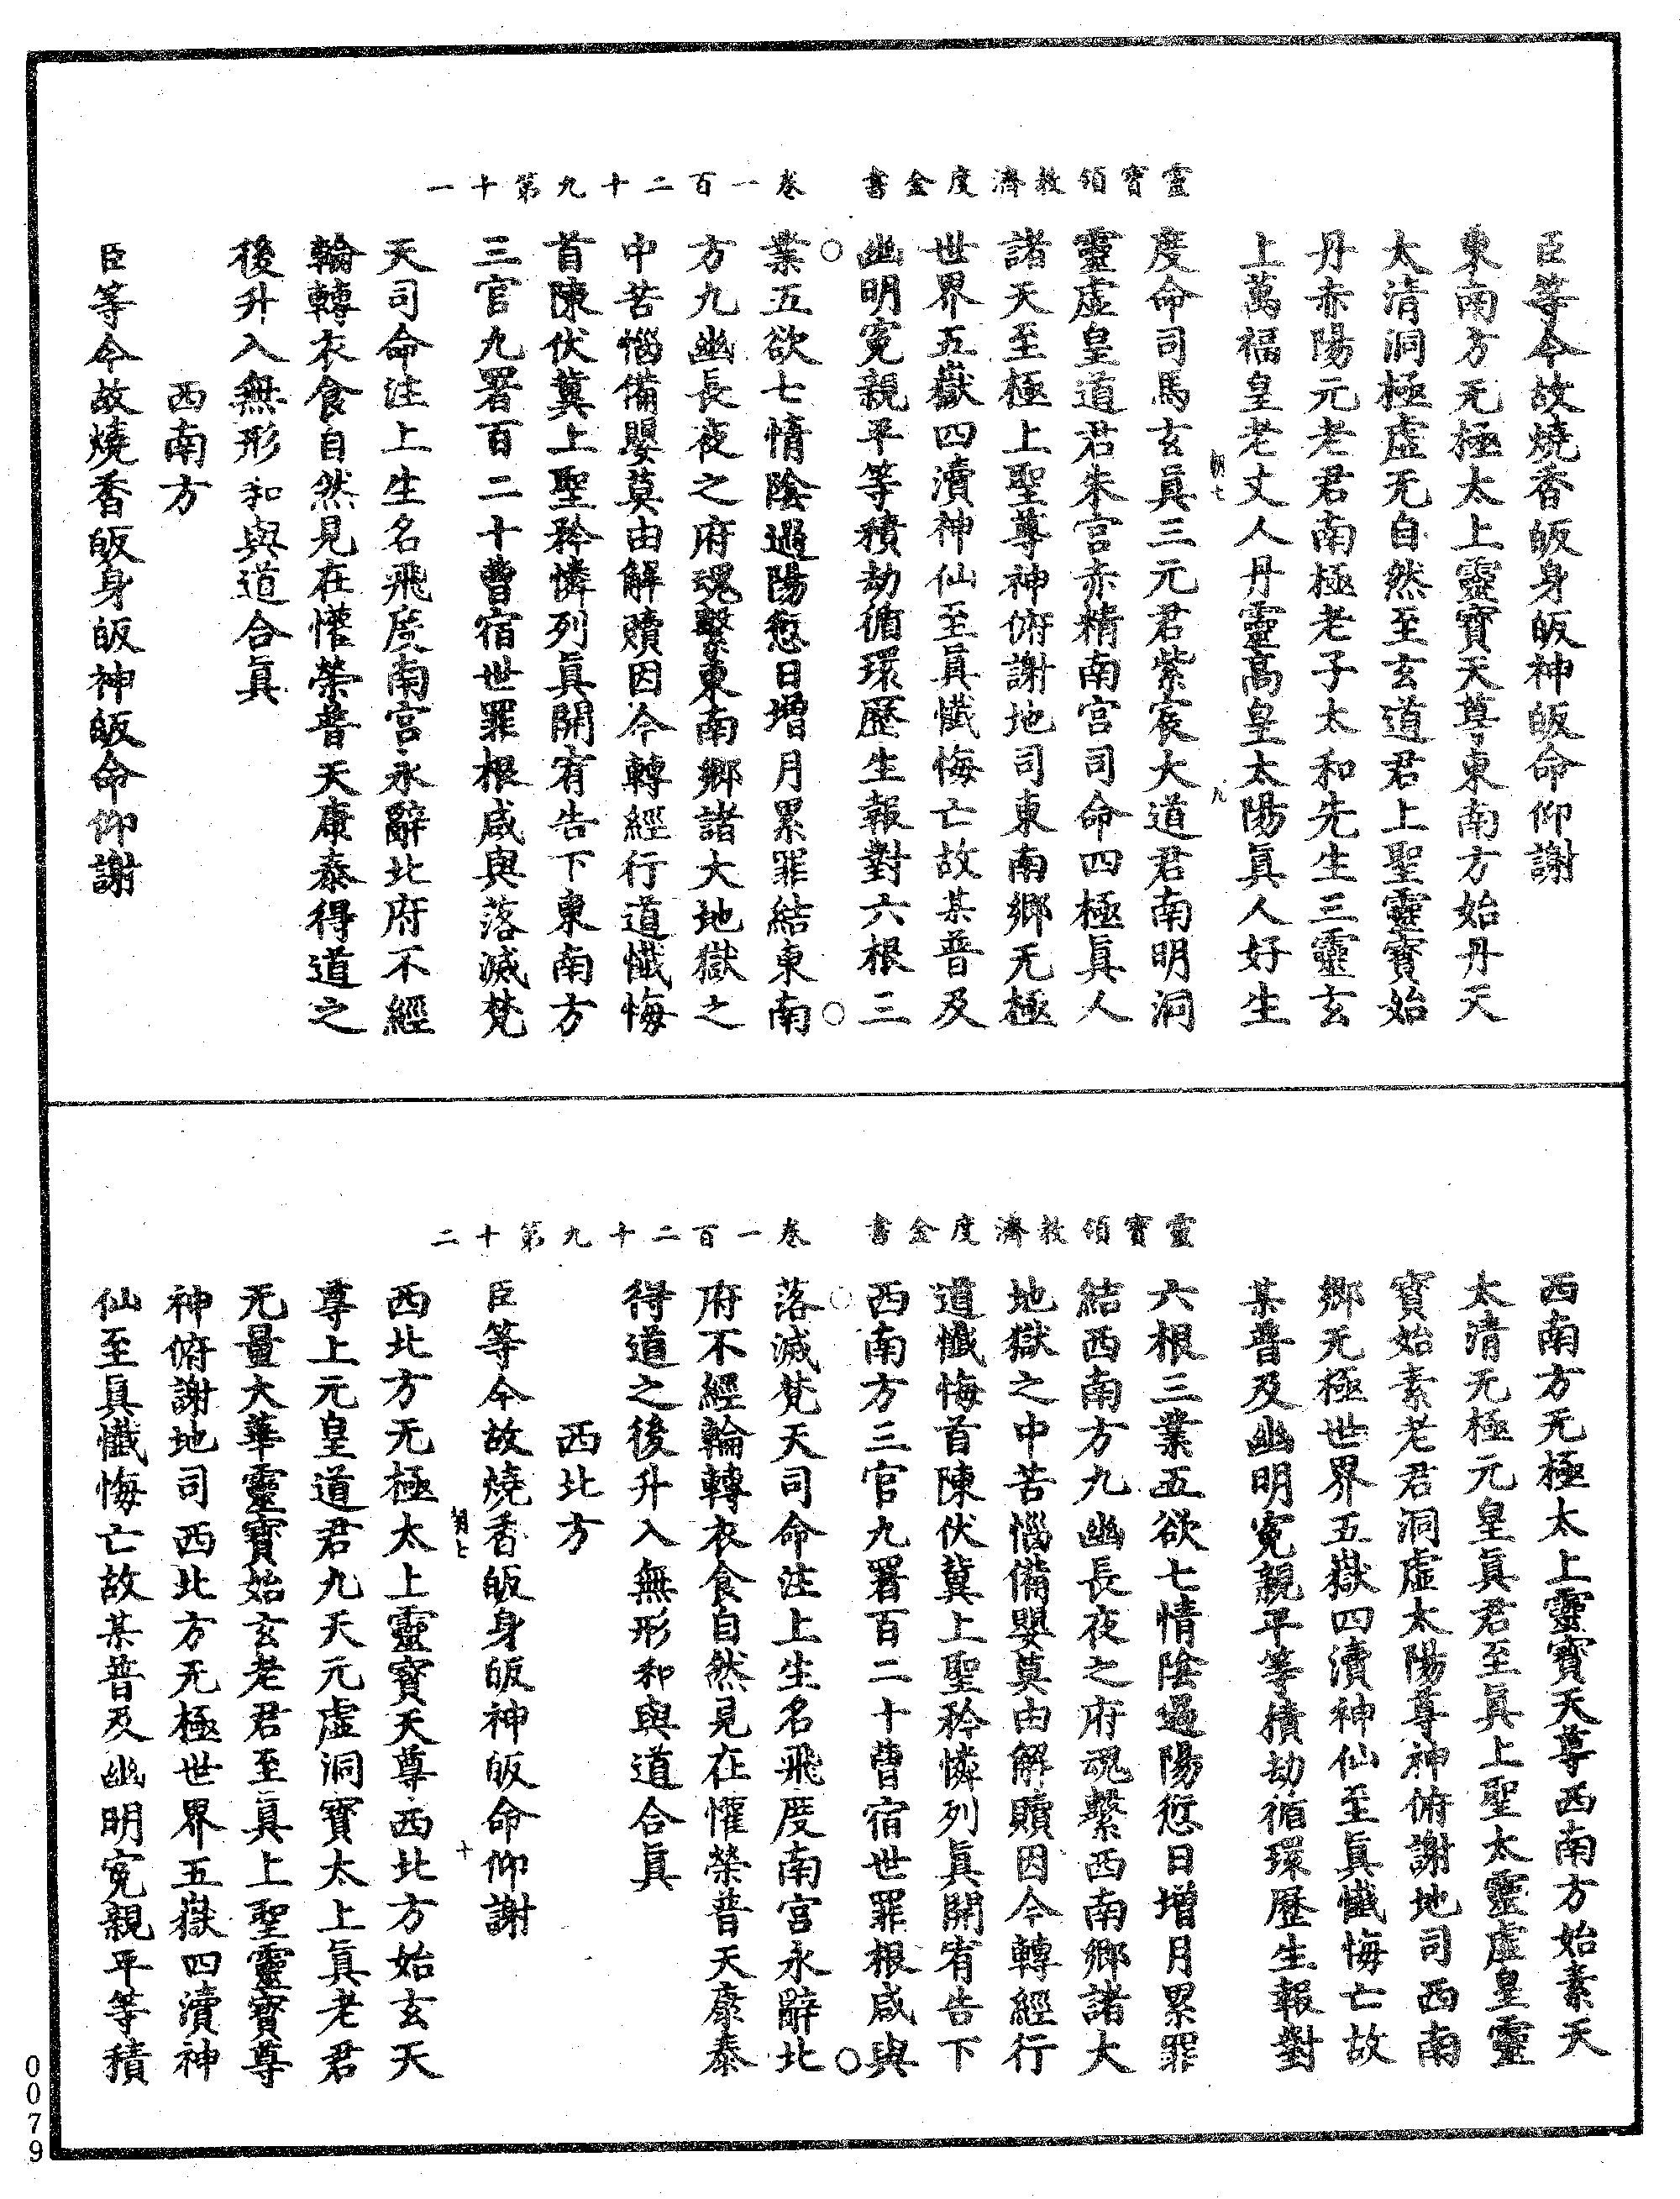 靈寶領教濟度金書　卷一百二十九第十一
臣等今故燒香皈身皈神皈命仰謝
東南方无極太上靈寶天尊東南方始丹天
太清洞極虛无自然至玄道君上聖靈寶始
丹赤陽元老君南極老子太和先生三靈玄
上萬福皇老丈人丹靈高皇太陽眞人好生
度命司馬玄眞三元君紫宸大道君南明洞
靈虛皇道君朱宮赤精南宮司命四極眞人
諸天至極上聖尊神俯謝地司東南鄉无極
世界五嶽四瀆神仙至眞懺悔亡故某普及
幽明冤親平等積劫循環歷生報對六根三
業五欲七情陰過陽愆日增月累罪結東南
方九幽長夜之府魂繫東南鄉諸大地獄之
中苦惱備嬰莫由解贖因今轉經行道懺悔
首陳伏冀上聖矜憐列眞開宥告下東南方
三官九署百二十曹宿世罪根咸與落滅梵
天司命注上生名飛度南宮永辭北府不經
輪轉衣食自然見在懽榮普天康泰得道之
後升入無形和與道合眞
西南方
臣等今故燒香皈身皈神皈命仰謝
靈寶領教濟度金書　卷一百二十九第十二
西南方无極太上靈寶天尊西南方始素天
太清无極元皇眞君至眞上聖太靈虛皇靈
寶始素老君洞虛太陽尊神俯謝地司西南
鄉无極世界五嶽四瀆神仙至眞懺悔亡故
某普及幽明冤親平等積劫循環歷生報對
六根三業五欲七情陰過陽愆日增月累罪
結西南方九幽長夜之府魂繫西南鄉諸大
地獄之中苦惱備嬰莫由解贖因今轉經行
道懺悔首陳伏冀上聖矜憐列眞開宥告下
西南方三官九署百二十曹宿世罪根咸與
落滅梵天司命注上生名飛度南宮永辭北
府不經輪轉衣食自然見在懽榮普天康泰
得道之後升入無形和與道合眞
西北方
臣等今故燒香皈身皈神皈命仰謝
西北方无極太上靈寶天尊西北方始玄天
尊上元皇道君九天元虛洞寶太上眞老君
无量大華靈寶始玄老君至眞上聖靈寶尊
神俯謝地司西北方无極世界五嶽四瀆神
仙至眞懺悔亡故某普及幽明冤親平等積
九
十
0079